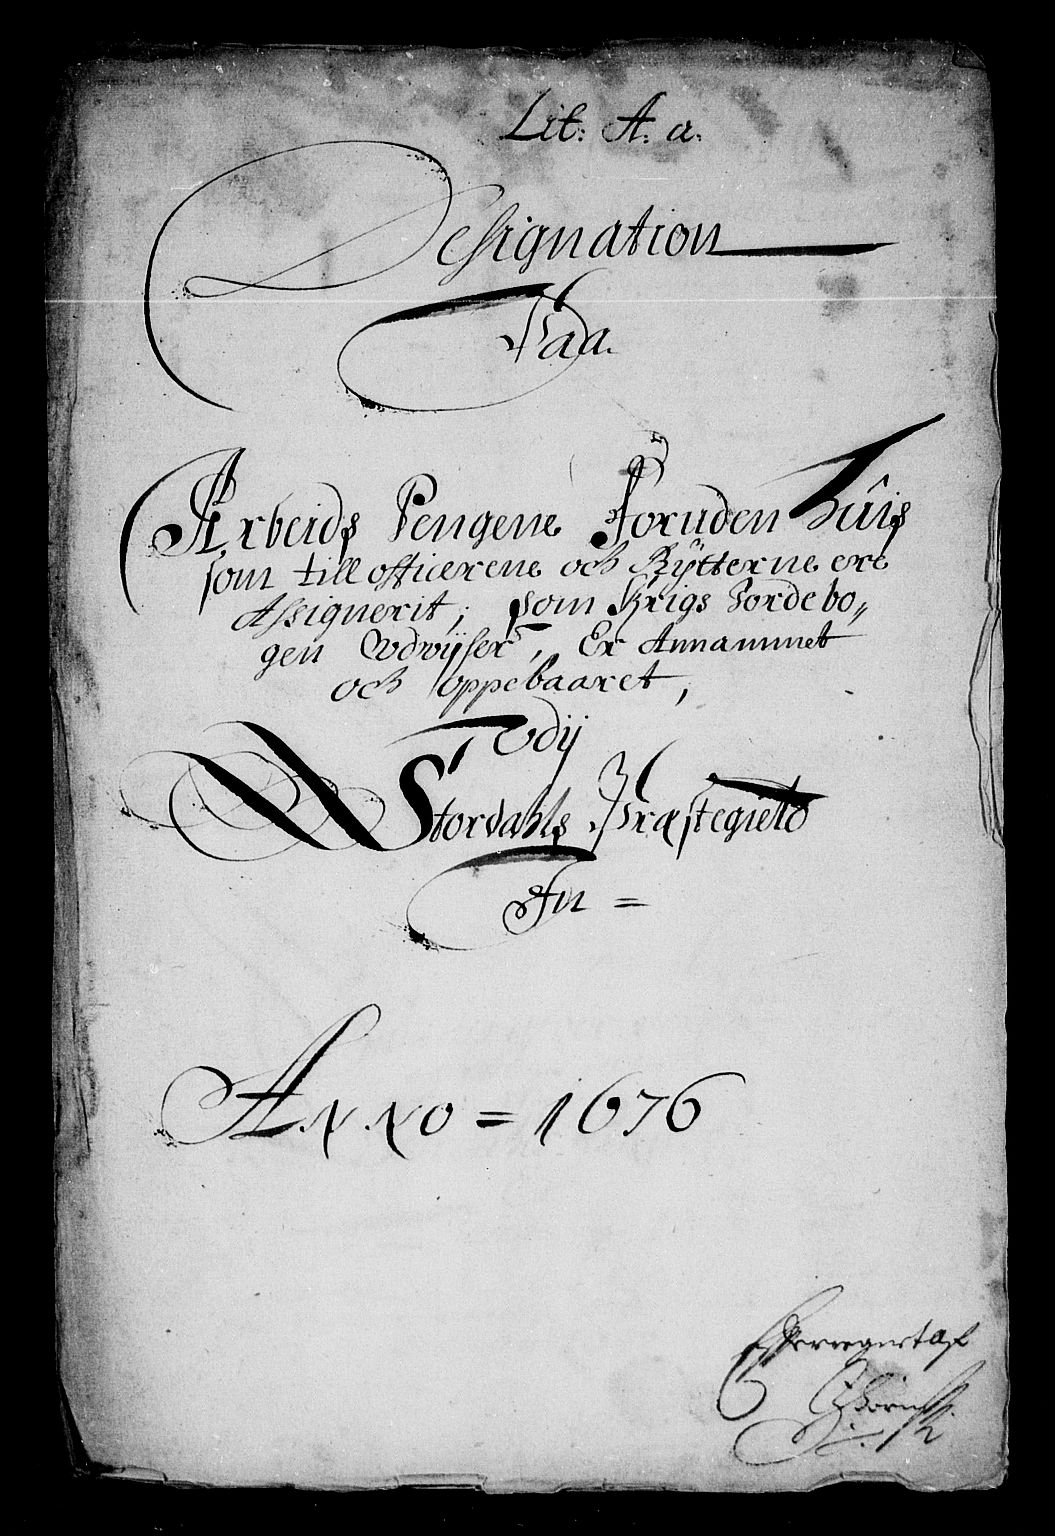 Lit: A. a.
Designation
Paa
Arbeids Pengene Foruden huûs
som till officerene och Rÿtterne ere
Assignerit, som Krigs Jordebo„
gen Udvÿser, Er Annammet
och oppebaaret,
Udÿ
Stordahls Præstegield
Fn =
Anno = 1676